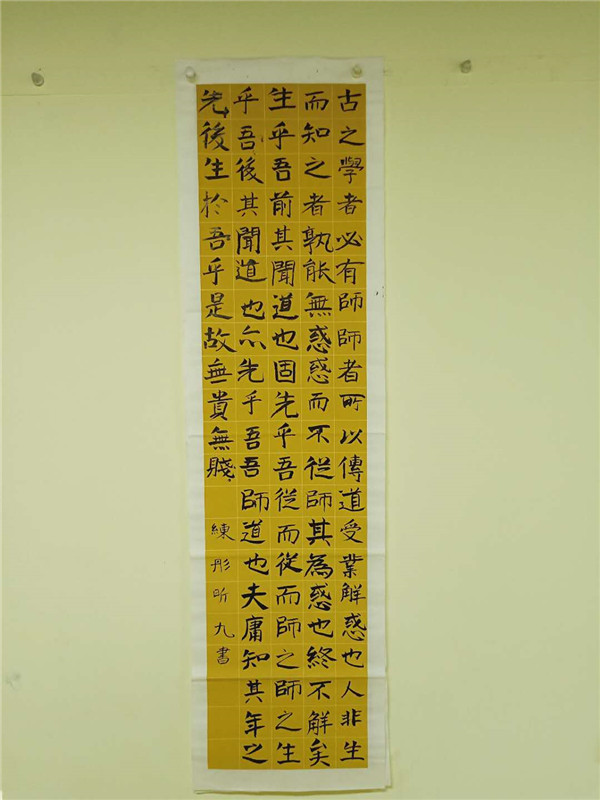 古之學者必有師師者所以傳道受業解惑也人非生
而知之者孰能無惑惑而不從師其為惑也終不解矣
生乎吾前其聞道也固先乎吾從而從而師之師之生
乎吾後其聞道也亦先乎吾吾師道也夫庸知其年之
先後生於吾乎是故無貴無賤
練彤昕九書